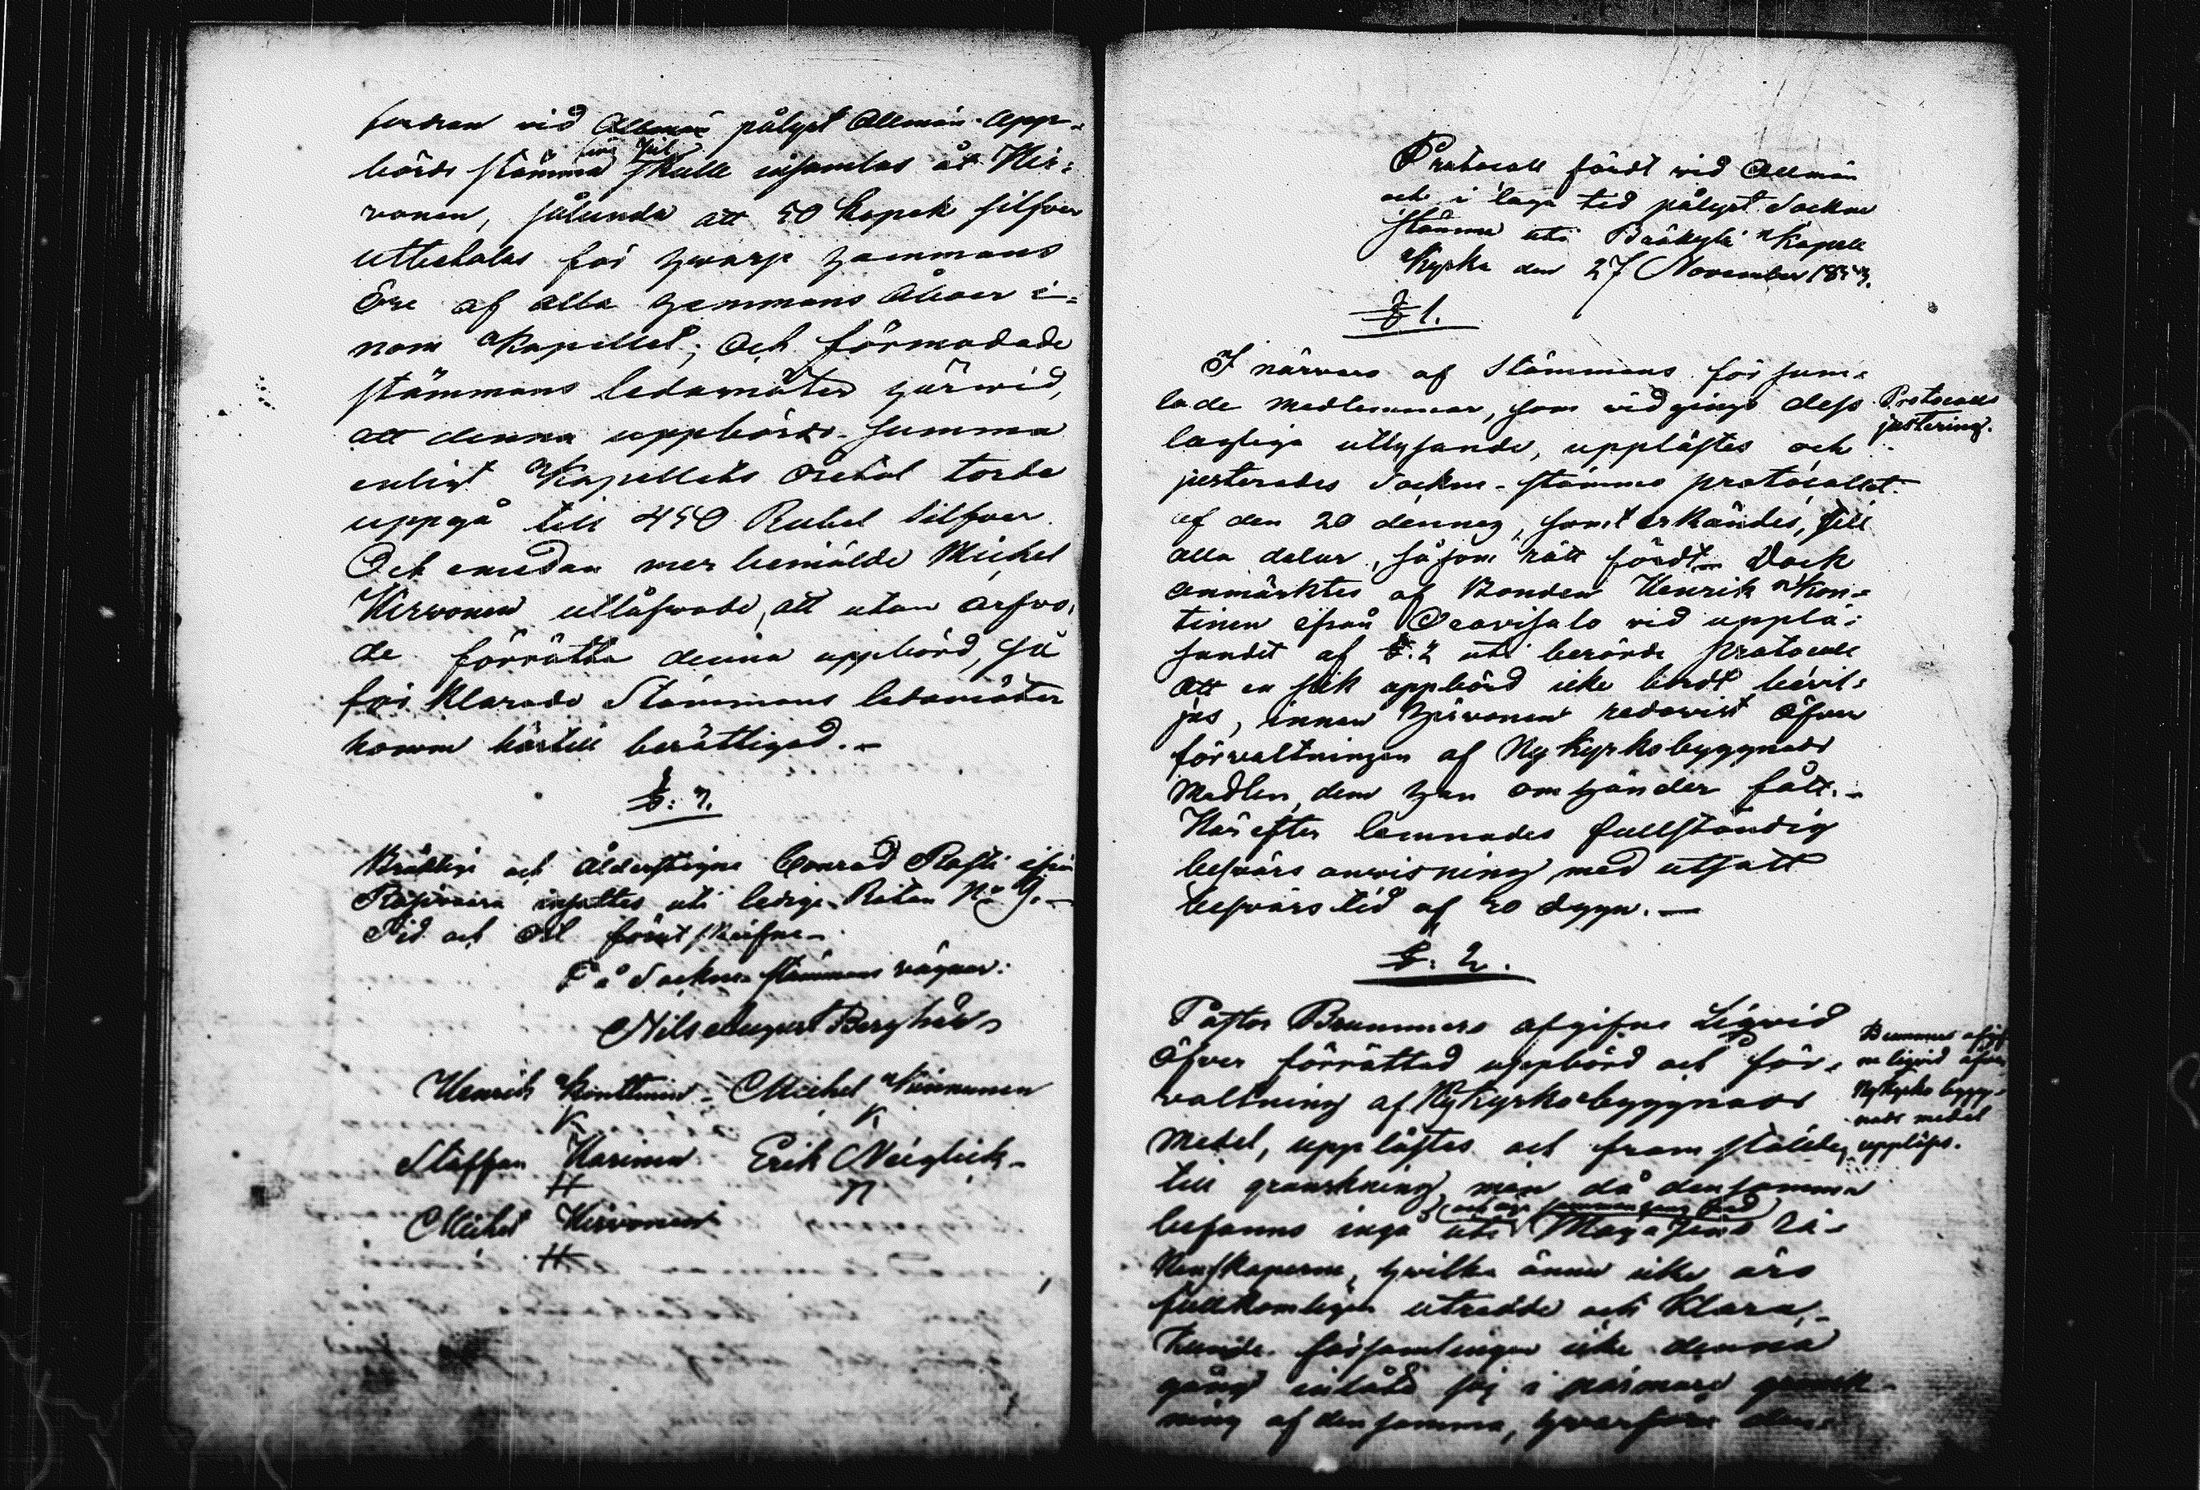 fordran vid Allmän pålyst Allmän Upp-
börds stämma skulle insamlas åt Hir-
vonen, sålunda att 50 kopek silfver
uttestalas för hvarje hemmans
Öre af alla hemmans åboer i-
nom Kapellet; Och förmodade
stämmans ledamöter härvid,
att denna uppbörds summa
enligt Kapellets Öretal torde
uppgå till 450 Rubel Silfver.
Och emedan merbemälde Michel
Hirvonen utlåfvade, att utan arfvo-
de förrätta denna uppbörd, så
förklarade Stämmans ledamöter
honom härtill berättigad.-
§: 3.
Bräcklige och Ålderstigne Conrad ifrån
insattes uti ledige Roten N:o 9.-
Tid och Ort förut skrifne-
På Sockne stämmans vägnar:
Nils August Bergh
Henrik Konttinen- Michel
K K
Staffan Karinen Erik Neiglick-
H N
Michel Hirvonen
H
Protocoll fördt vid Allmän
och i laga tid pålyst Sockne
Stämma uti Bräkylä Kapell
Kyrka den 27 November 1853.
§ 1.
I närvaro af Stämmans församm-
lade medlemmar, som vidgingo dess
lagliga utlysande, upplästes och
justerades Sockne-stämmo protocollet
af den 20 dennes, samt erkändes, till
alla delar, såsom rätt fördt- Dock
anmärktes af Bonden Henrik Kon-
tinen ifrån Oravisalo vid upplä-
sandet af §. 2 uti berörde protocoll
att en slik uppbörd icke bordt bevil-
jas, innan Hirvonen redovist öfver
förvaltningen af Ny Kyrkobyggnads
Medlen, dem han om händer fått.-
Härefter lemnades fullständig
besvärs anvisning med utsatt
besvärs tid af 30 dygn.-
Protocolls
justering.
§: 2.
Pastor Brummers afgifne Liqvid
öfver förrättad uppbörd och för-
valtning af Nykyrkobyggnads
Medel, upplästes och framställdes
till granskning, men då densamma
befanns ingå uti Magasins Rä-
kenskaperne, hvilka ännu icke äro
fullkomligen utredde och klara,
kunde församlingen icke denna
gång inlåta sig i närmare gransk-
ning af densamma, hvarföre den-
Brummers afgif-
ne liqvid öfver
Nykyrko bygg-
nads medel
uppläses.